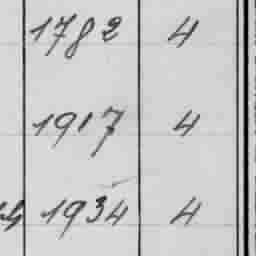 1782 4
1917 4
1934 4